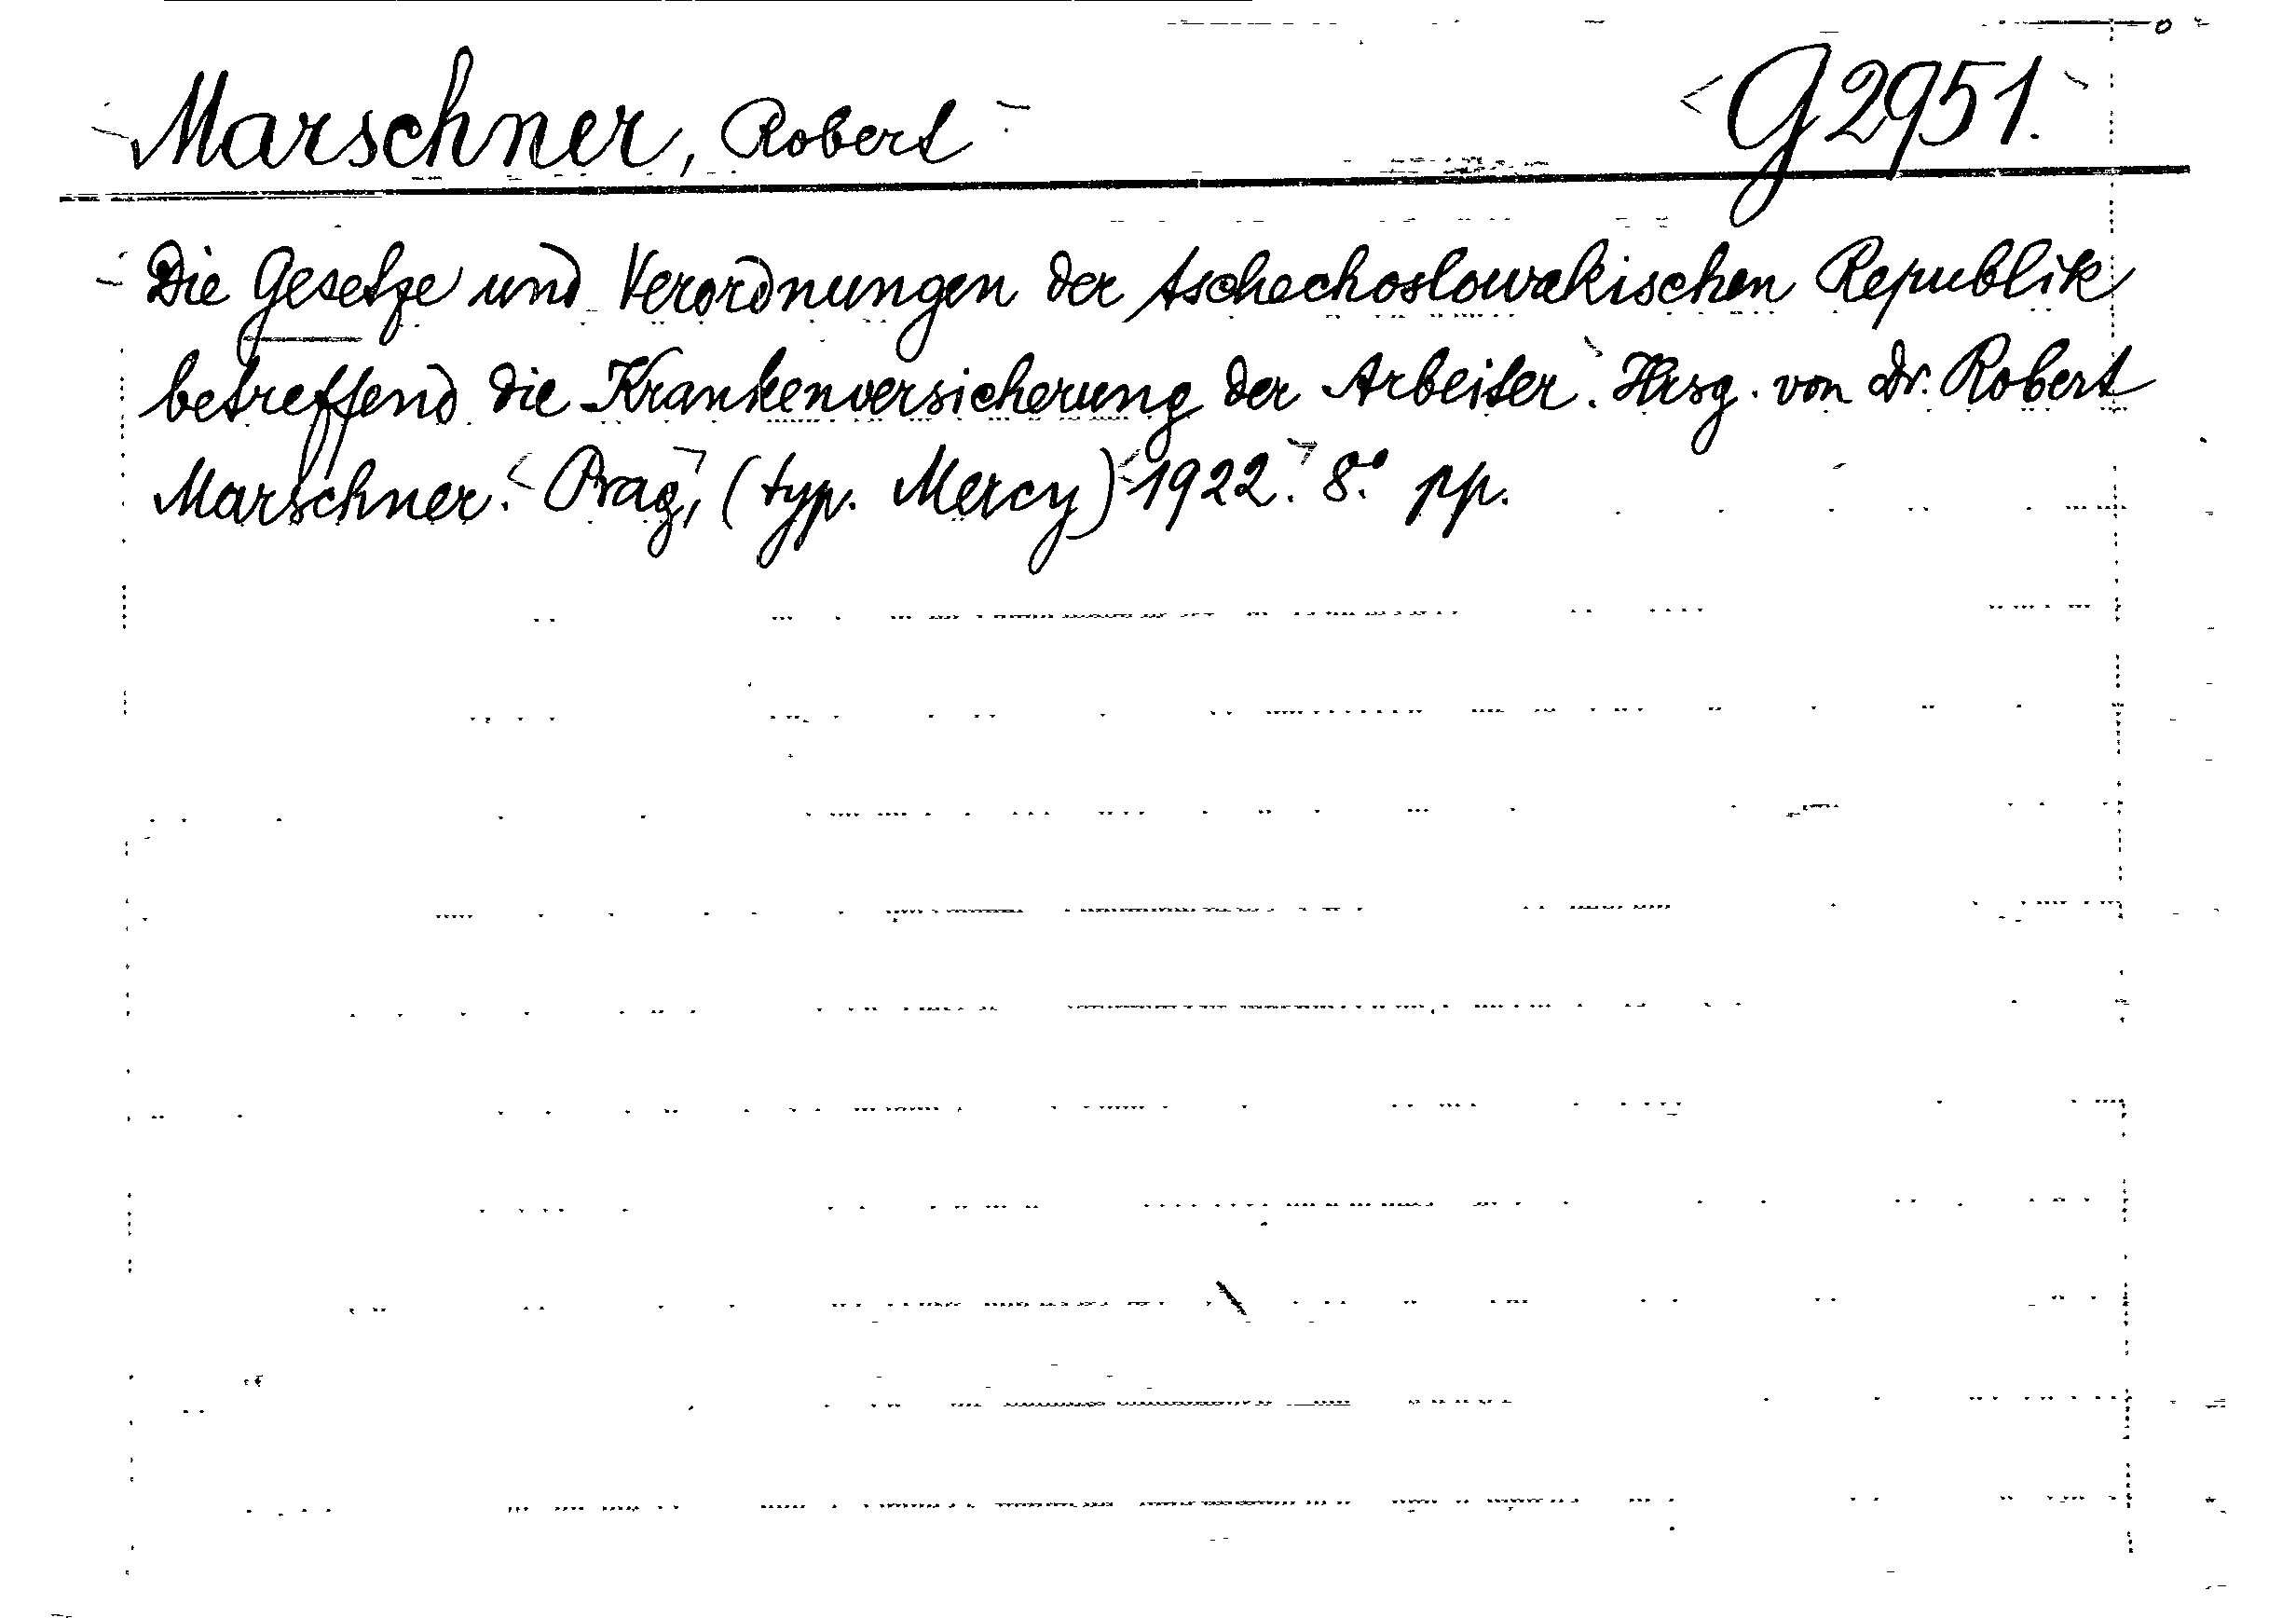 Marschner, Robert G 2951.
Die Gesetze und Verordnungen der tschechoslowakischen Republik
betreffend die Krankenversicherung der Arbeiter. Hrsg. von Dr. Robert
Marschner. Prag, (typ. Mercy) 1922. 8.° pp.